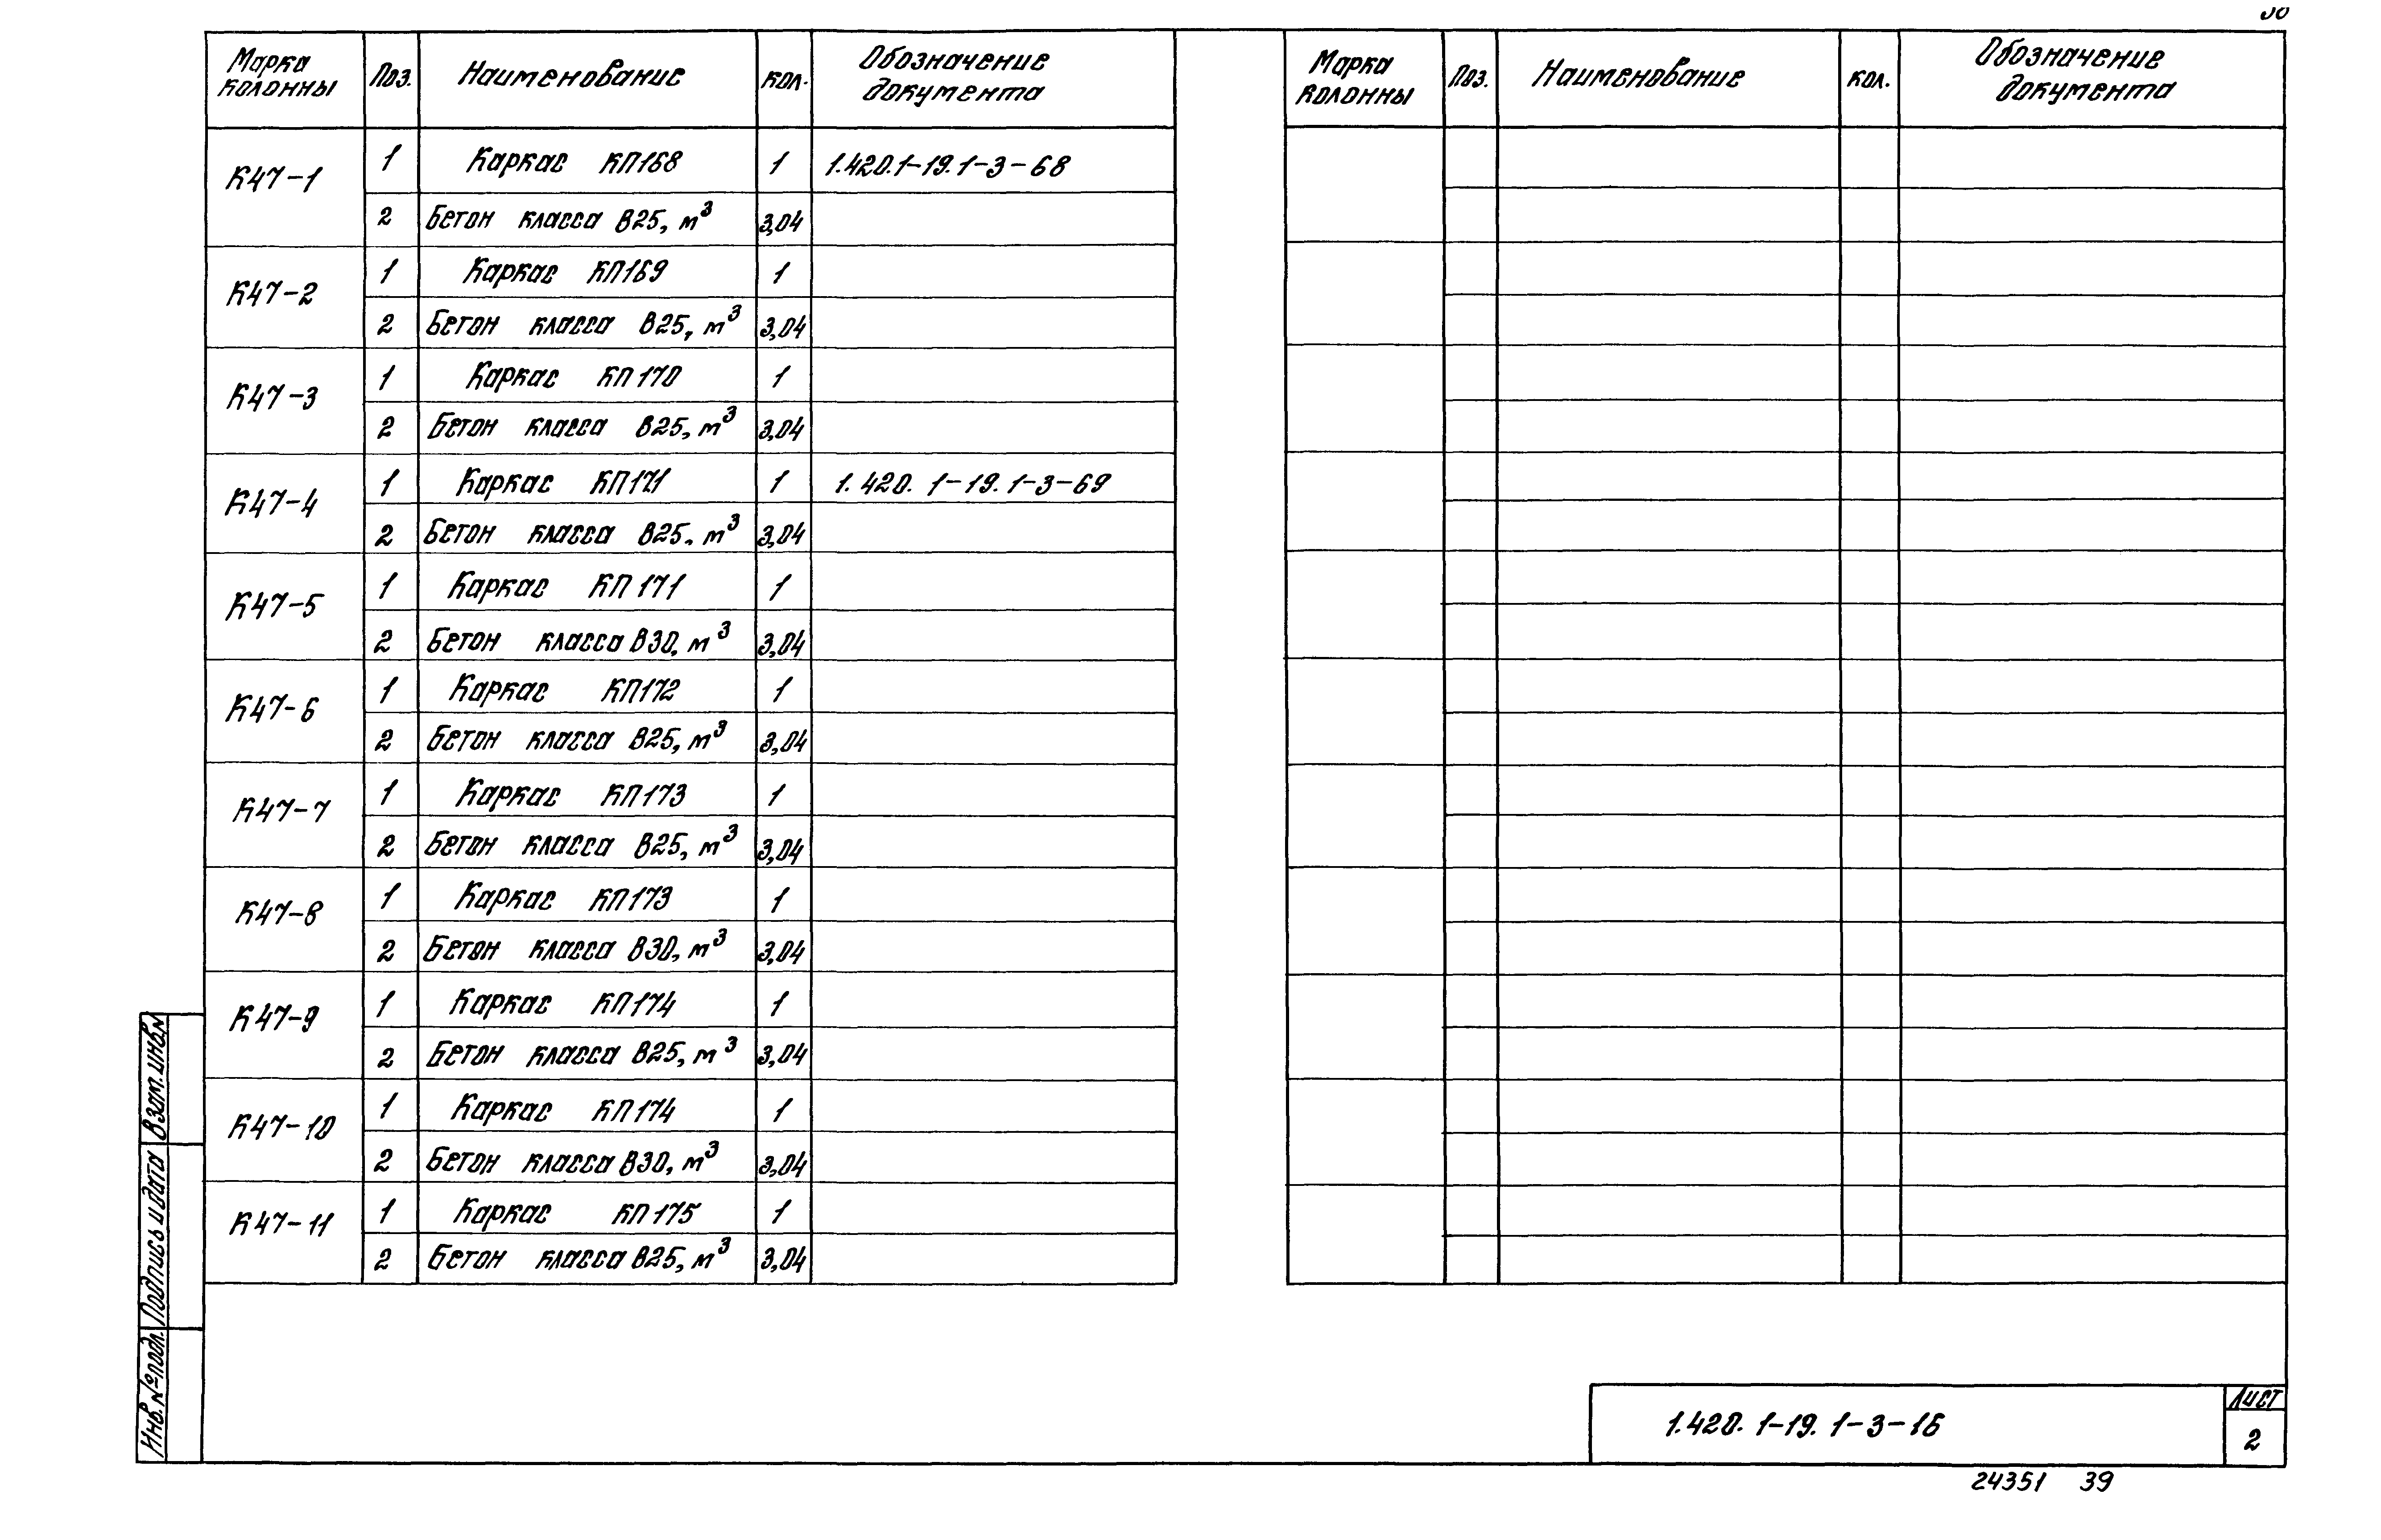 Марка колонны Поз. Наименование кол. Обозначение документа
К47-1 1 Каркас КП168 1 1.420.1-19.1-3-68
2 Бетон класса В25, м³ 3,04
К47-2 1 Каркас КП169 1
2 Бетон класса В25, м³ 3,04
К47-3 1 Каркас КП170 1
2 Бетон класса В25, м³ 3,04
К47-4 1 Каркас КП171 1 1.420.1-19.1-3-69
2 Бетон класса В25, м³ 3,04
К47-5 1 Каркас КП171 1
2 Бетон класса В30, м³ 3,04
К47-6 1 Каркас КП172 1
2 Бетон класса В25, м³ 3,04
К47-7 1 Каркас КП173 1
2 Бетон класса В25, м³ 3,04
К47-8 1 Каркас КП173 1
2 Бетон класса В30, м³ 3,04
К47-9 1 Каркас КП174 1
2 Бетон класса В25, м³ 3,04
К47-10 1 Каркас КП174 1
2 Бетон класса В30, м³ 3,04
К47-11 1 Каркас КП175 1
2 Бетон класса В25, м³ 3,04
Марка колонны Поз. Наименование кол. Обозначение документа
Взам. инв. №
Подпись и дата
Инв. № подл.
1.420.1-19.1-3-16
Лист
2
24351 39